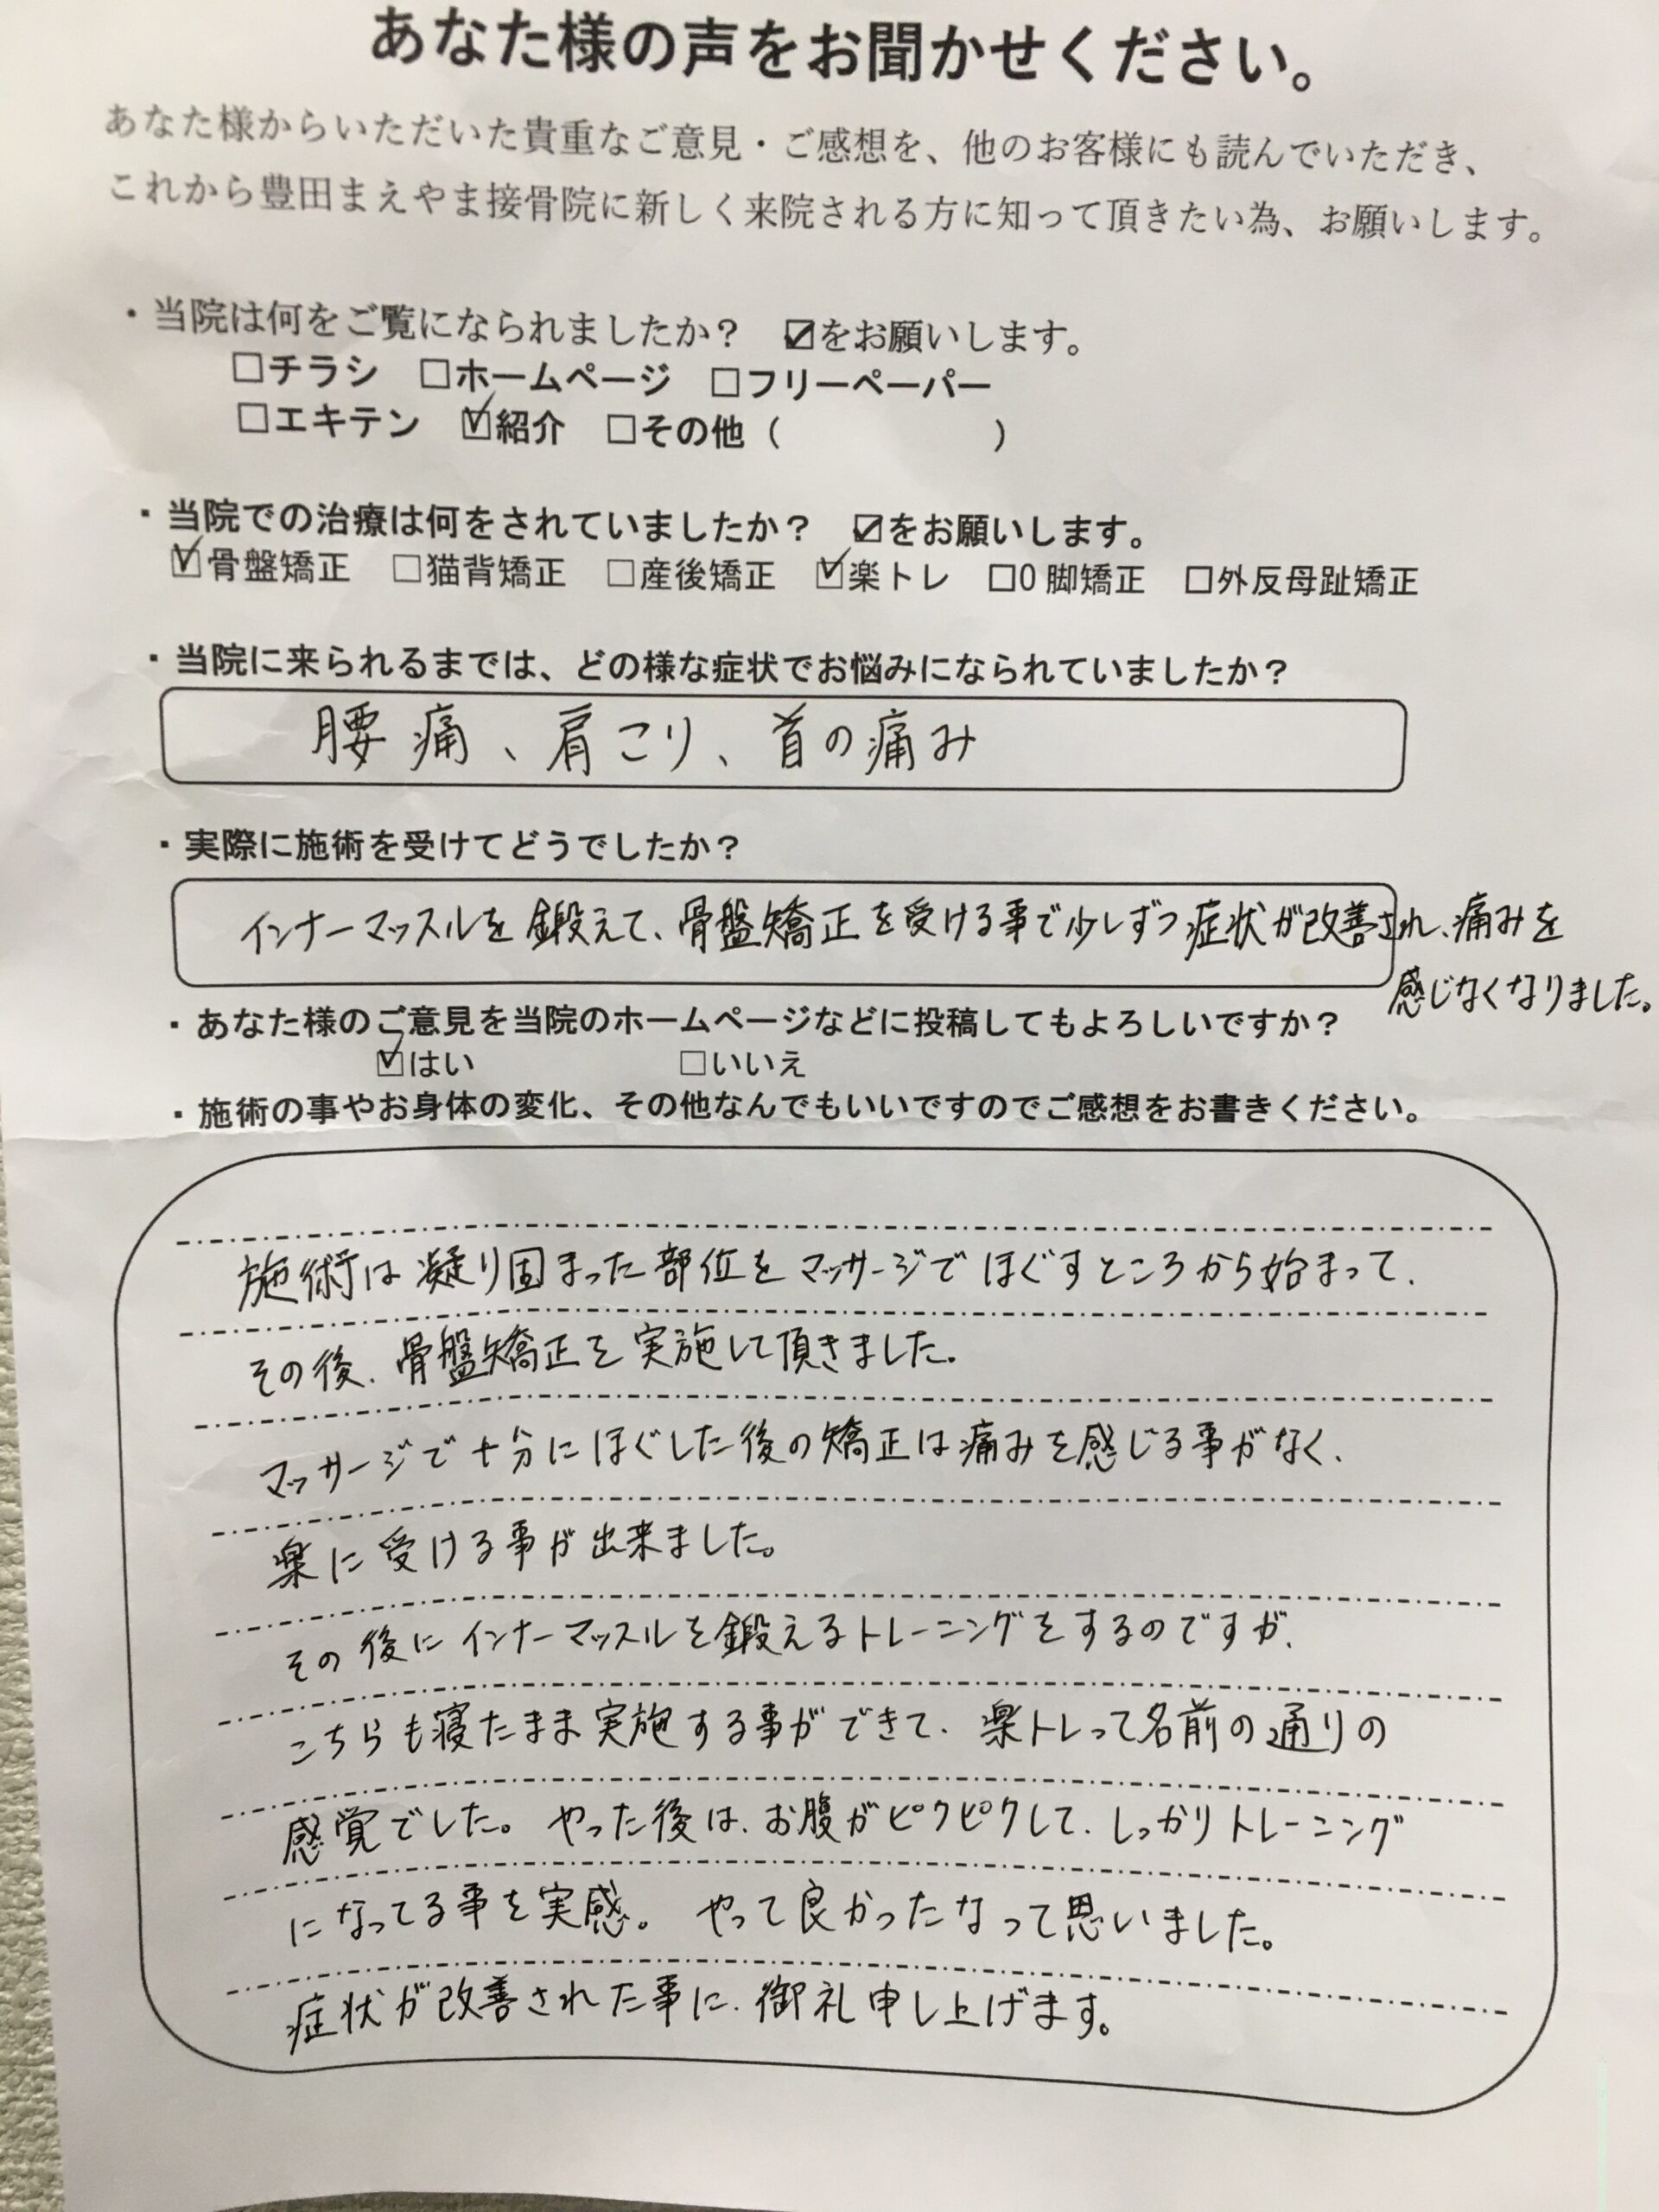 あなた様の声をお聞かせください。
あなた様からいただいた貴重なご意見・ご感想を、他のお客様にも読んでいただき、
これから豊田まえやま接骨院に新しく来院される方に知って頂きたい為、お願いします。
・当院は何をご覧になられましたか？ ☑をお願いします。
□チラシ □ホームページ □フリーペーパー
□エキテン ☑紹介 □その他（ ）
・当院での治療は何をされていましたか？ ☑をお願いします。
☑骨盤矯正 □猫背矯正 □産後矯正 ☑楽トレ □O脚矯正 □外反母趾矯正
・当院に来られるまでは、どの様な症状でお悩みになられていましたか？
腰痛、肩こり、首の痛み
・実際に施術を受けてどうでしたか？
インナーマッスルを鍛えて、骨盤矯正を受ける事で少しずつ症状が改善され、痛みを
感じなくなりました。
・あなた様のご意見を当院のホームページなどに投稿してもよろしいですか？
☑はい □いいえ
・施術の事やお身体の変化、その他なんでもいいですのでご感想をお書きください。
施術は凝り固まった部位をマッサージでほぐすところから始まって、
その後、骨盤矯正を実施して頂きました。
マッサージで十分にほぐした後の矯正は痛みを感じる事がなく、
楽に受ける事が出来ました。
その後にインナーマッスルを鍛えるトレーニングをするのですが、
こちらも寝たまま実施する事ができて、楽トレって名前の通りの
感覚でした。やった後は、お腹がピクピクして、しっかりトレーニング
になってる事を実感。やって良かったなって思いました。
症状が改善された事に、御礼申し上げます。